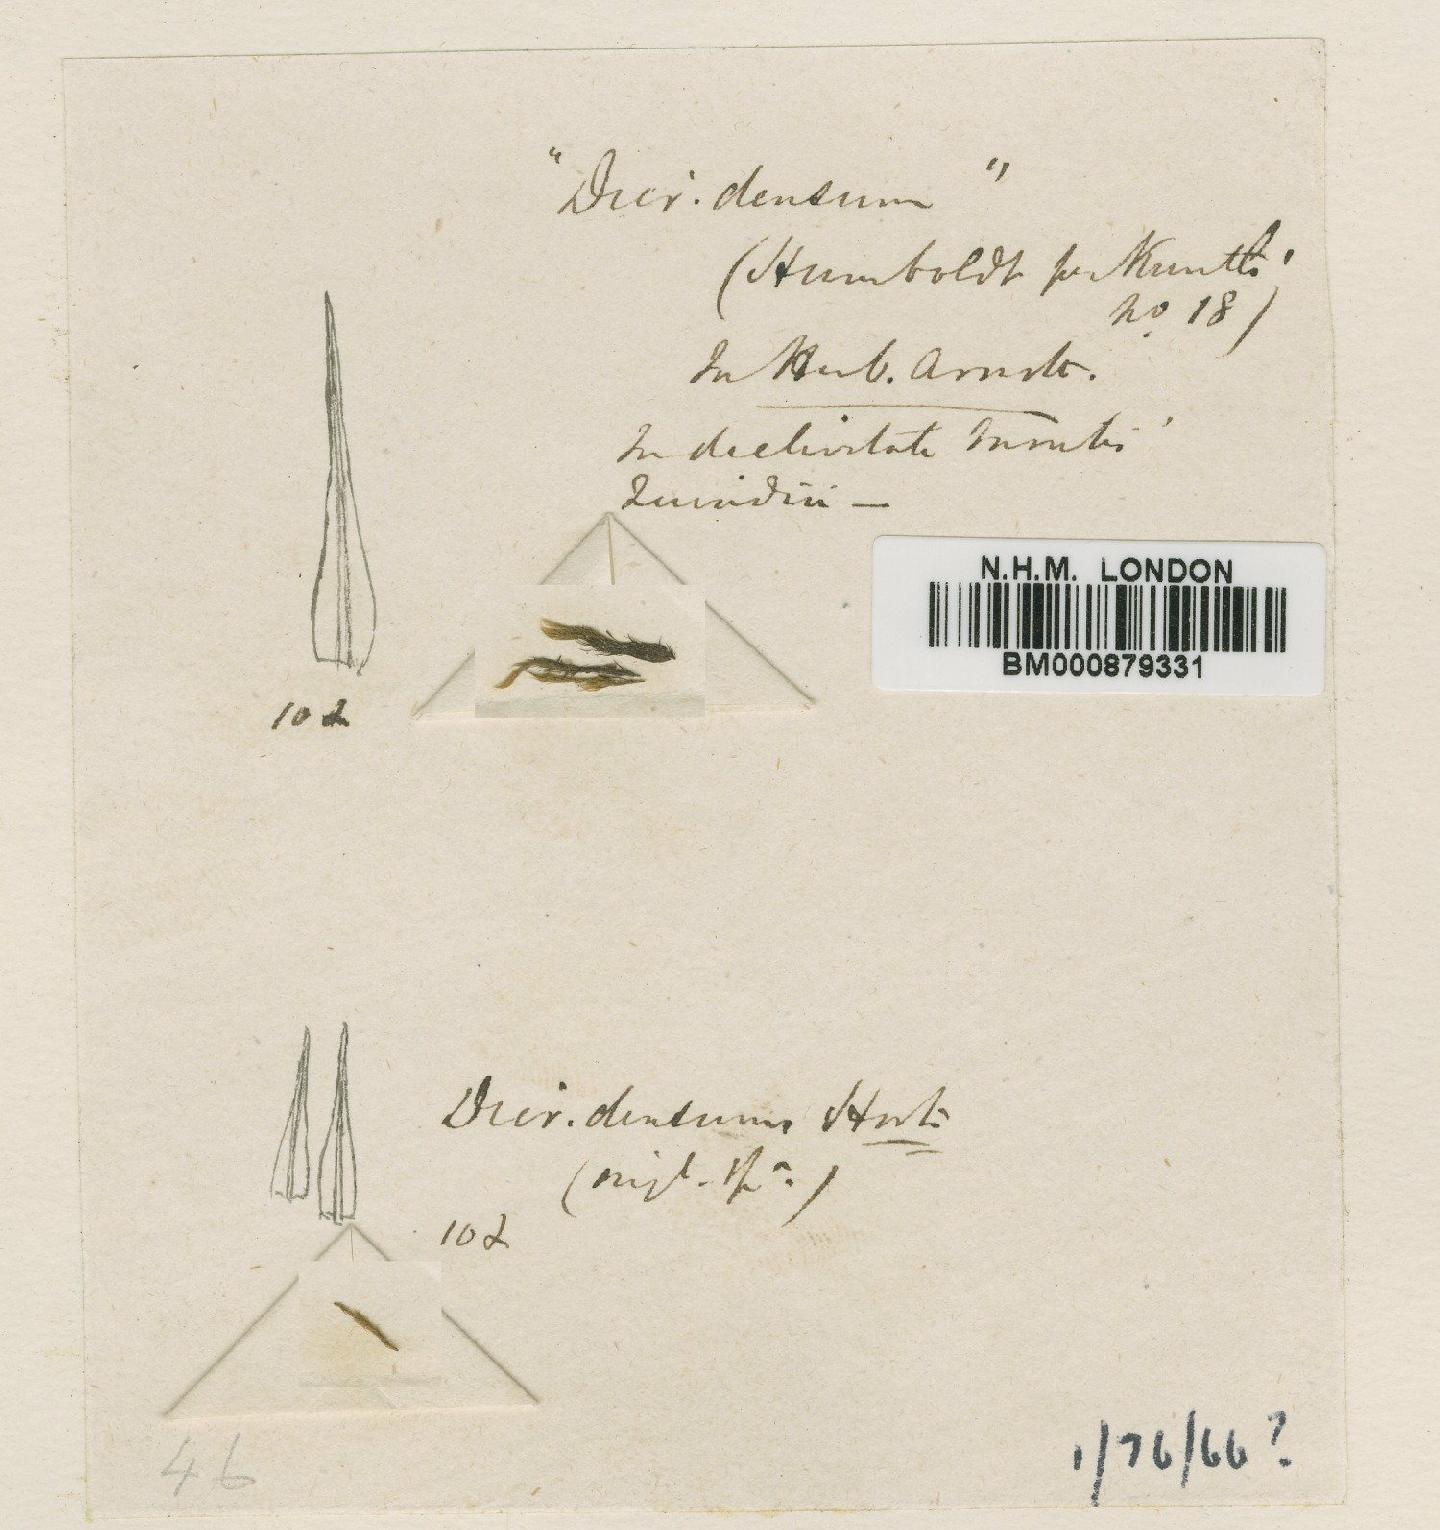 "Dicr. densum"
(Humboldt per Kunth
no. 18)
In Herb. Arnott.
In declivitate Montis
Quindiu —
N.H.M. LONDON
BM000879331
102
Dicr. densum Hook
(origl. spn.)
102
46
1/76/66?